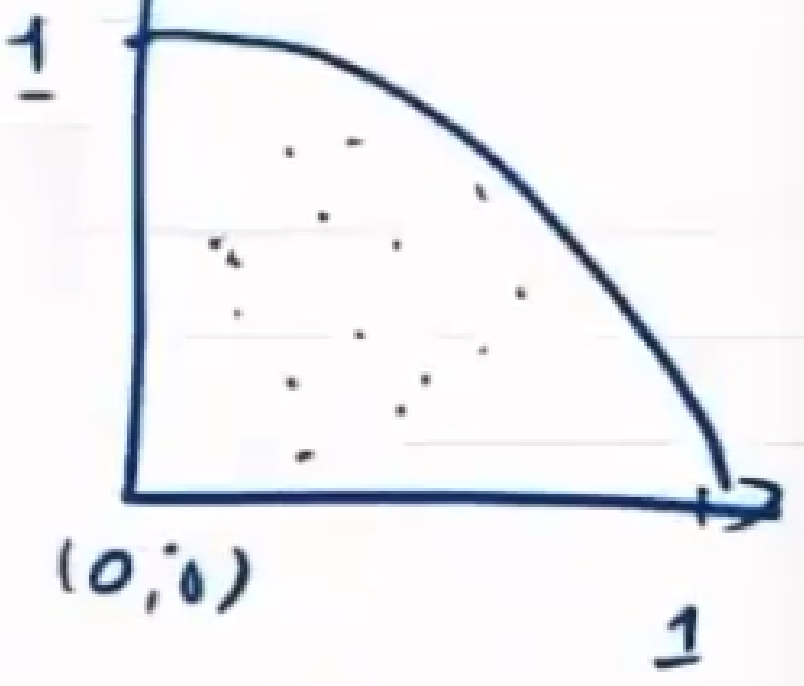 1
(0,0)
1